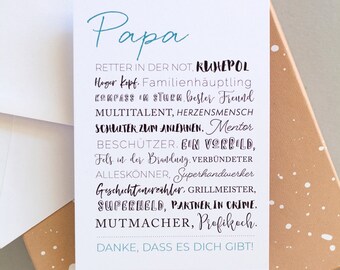 Papa
RETTER IN DER NOT, RUHEPOL
kluger Kopf, Familienhäuptling
KOMPASS IM STURM, bester Freund
MULTITALENT, HERZENSMENSCH
SCHULTER ZUM ANLEHNEN, Mentor
BESCHÜTZER, EIN VORBILD,
Fels in der Brandung, VERBÜNDETER
ALLESKÖNNER, Superhandwerker
Geschichtenerzähler, GRILLMEISTER,
SUPERHELD, PARTNER IN CRIME,
MUTMACHER, Profikoch.
DANKE, DASS ES DICH GIBT!